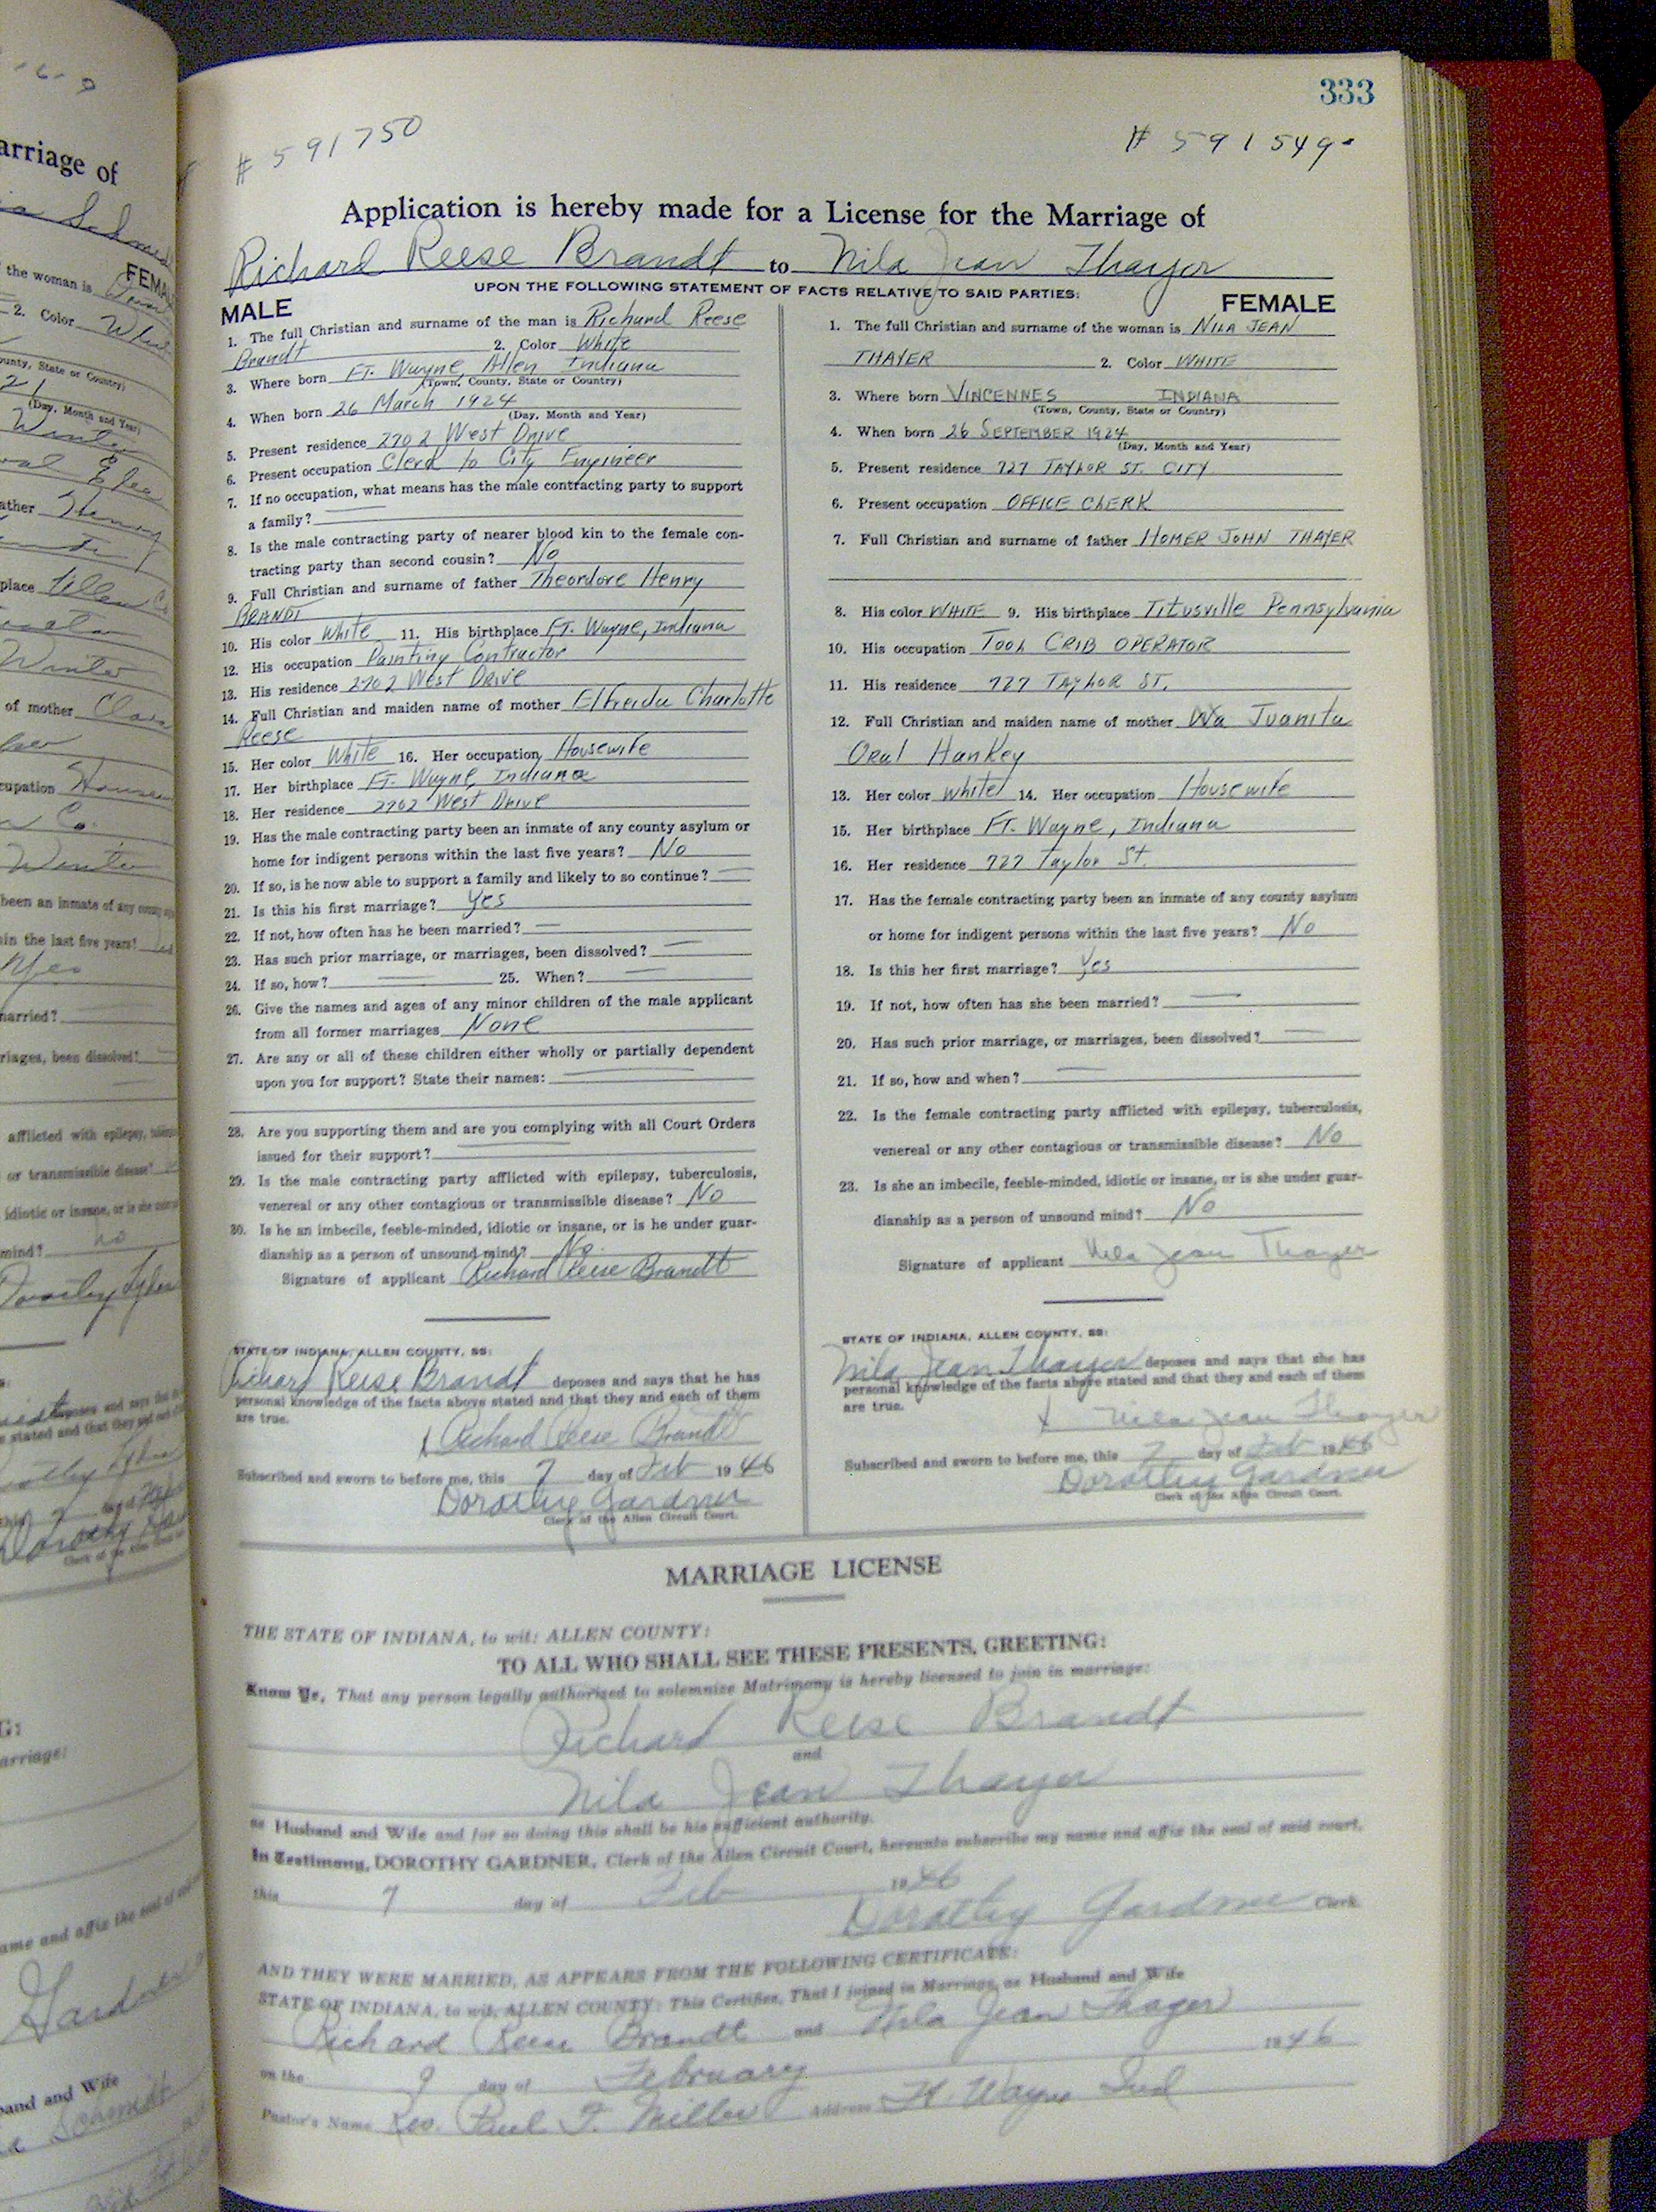 333
# 591750
# 591549
Application is hereby made for a License for the Marriage of
Richard Reese Brandt to Nila Jean Thayer
UPON THE FOLLOWING STATEMENT OF FACTS RELATIVE TO SAID PARTIES:
MALE
1. The full Christian and surname of the man is Richard Reese
Brandt 2. Color White
3. Where born Ft. Wayne, Allen Indiana
(Town, County, State or Country)
4. When born 26 March 1924
(Day, Month and Year)
5. Present residence 2702 West Drive
6. Present occupation Clerk to City Engineer
7. If no occupation, what means has the male contracting party to support
a family?
8. Is the male contracting party of nearer blood kin to the female con-
tracting party than second cousin? No
9. Full Christian and surname of father Theordore Henry
BRANDT
10. His color White 11. His birthplace Ft. Wayne, Indiana
12. His occupation Painting Contractor
13. His residence 2702 West Drive
14. Full Christian and maiden name of mother Elfreida Charlotte
Reese
15. Her color White 16. Her occupation Housewife
17. Her birthplace Ft. Wayne, Indiana
18. Her residence 2702 West Drive
19. Has the male contracting party been an inmate of any county asylum or
home for indigent persons within the last five years? No
20. If so, is he now able to support a family and likely to so continue?
21. Is this his first marriage? Yes
22. If not, how often has he been married?
23. Has such prior marriage, or marriages, been dissolved?
24. If so, how? 25. When?
26. Give the names and ages of any minor children of the male applicant
from all former marriages None
27. Are any or all of these children either wholly or partially dependent
upon you for support? State their names:
28. Are you supporting them and are you complying with all Court Orders
issued for their support?
29. Is the male contracting party afflicted with epilepsy, tuberculosis,
venereal or any other contagious or transmissible disease? No
30. Is he an imbecile, feeble-minded, idiotic or insane, or is he under guar-
dianship as a person of unsound mind? No
Signature of applicant Richard Reese Brandt
STATE OF INDIANA, ALLEN COUNTY, SS:
Richard Reese Brandt deposes and says that he has
personal knowledge of the facts above stated and that they and each of them
are true.
Richard Reese Brandt
Subscribed and sworn to before me, this 7 day of Feb 1946
Dorothy Gardner
Clerk of the Allen Circuit Court.
FEMALE
1. The full Christian and surname of the woman is NILA JEAN
THAYER 2. Color WHITE
3. Where born VINCENNES INDIANA
(Town, County, State or Country)
4. When born 26 SEPTEMBER 1924
(Day, Month and Year)
5. Present residence 727 TAYLOR ST. CITY
6. Present occupation OFFICE CLERK
7. Full Christian and surname of father HOMER JOHN THAYER
8. His color WHITE 9. His birthplace Titusville Pennsylvania
10. His occupation TOOL CRIB OPERATOR
11. His residence 727 TAYLOR ST.
12. Full Christian and maiden name of mother Juanita
Oral Hankey
13. Her color White 14. Her occupation Housewife
15. Her birthplace Ft. Wayne, Indiana
16. Her residence 727 Taylor St.
17. Has the female contracting party been an inmate of any county asylum
or home for indigent persons within the last five years? No
18. Is this her first marriage? Yes
19. If not, how often has she been married?
20. Has such prior marriage, or marriages, been dissolved?
21. If so, how and when?
22. Is the female contracting party afflicted with epilepsy, tuberculosis,
venereal or any other contagious or transmissible disease? No
23. Is she an imbecile, feeble-minded, idiotic or insane, or is she under guar-
dianship as a person of unsound mind? No
Signature of applicant Nila Jean Thayer
STATE OF INDIANA, ALLEN COUNTY, SS:
Nila Jean Thayer deposes and says that she has
personal knowledge of the facts above stated and that they and each of them
are true.
x Nila Jean Thayer
Subscribed and sworn to before me, this 7 day of Feb 1946
Dorothy Gardner
Clerk of the Allen Circuit Court.
MARRIAGE LICENSE
THE STATE OF INDIANA, to wit: ALLEN COUNTY:
TO ALL WHO SHALL SEE THESE PRESENTS, GREETING:
Know Ye, That any person legally authorized to solemnize Matrimony is hereby licensed to join in marriage:
Richard Reese Brandt
and
Nila Jean Thayer
as Husband and Wife and for so doing this shall be his sufficient authority.
In Testimony, DOROTHY GARDNER, Clerk of the Allen Circuit Court, hereunto subscribe my name and affix the seal of said court,
this 7 day of Feb 1946
Dorothy Gardner Clerk
AND THEY WERE MARRIED, AS APPEARS FROM THE FOLLOWING CERTIFICATE:
STATE OF INDIANA, to wit, ALLEN COUNTY: This Certifies, That I joined in Marriage, as Husband and Wife
Richard Reese Brandt and Nila Jean Thayer
on the 9 day of February 1946
Pastor's Name Rev. Paul F. Miller Address Ft. Wayne Ind